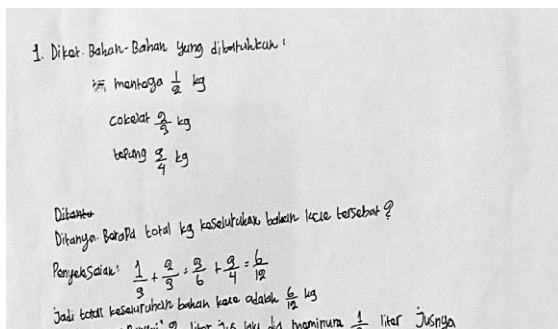 1. Diket. Bahan-Bahan yang dibutuhkan :
mentega 1/2 kg
cokelat 2/3 kg
tepung 3/4 kg
Ditanya. Berapa total kg keseluruhan bahan kue tersebut ?
Penyelesaian : 1/3 + 2/3 = 3/6 + 3/4 = 6/12
Jadi total keseluruhan bahan kue adalah 6/12 kg
liter jus meminum 1 liter jusnya